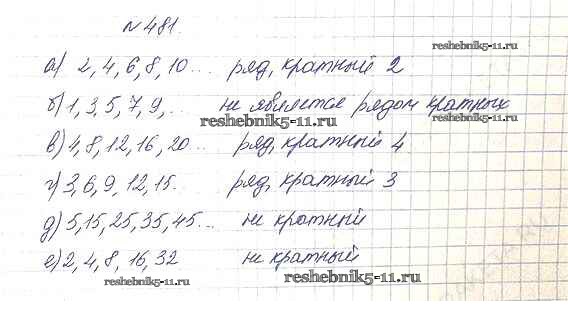 № 481.
reshebnik5-11.ru
а) 2, 4, 6, 8, 10... ряд, кратный 2
б) 1, 3, 5, 7, 9, ... не является рядом кратных
reshebnik5-11.ru
в) 4, 8, 12, 16, 20... ряд, кратный 4
г) 3, 6, 9, 12, 15.. ряд, кратный 3
д) 5, 15, 25, 35, 45... не кратный
е) 2, 4, 8, 16, 32 не кратный
reshebnik5-11.ru
reshebnik5-11.ru